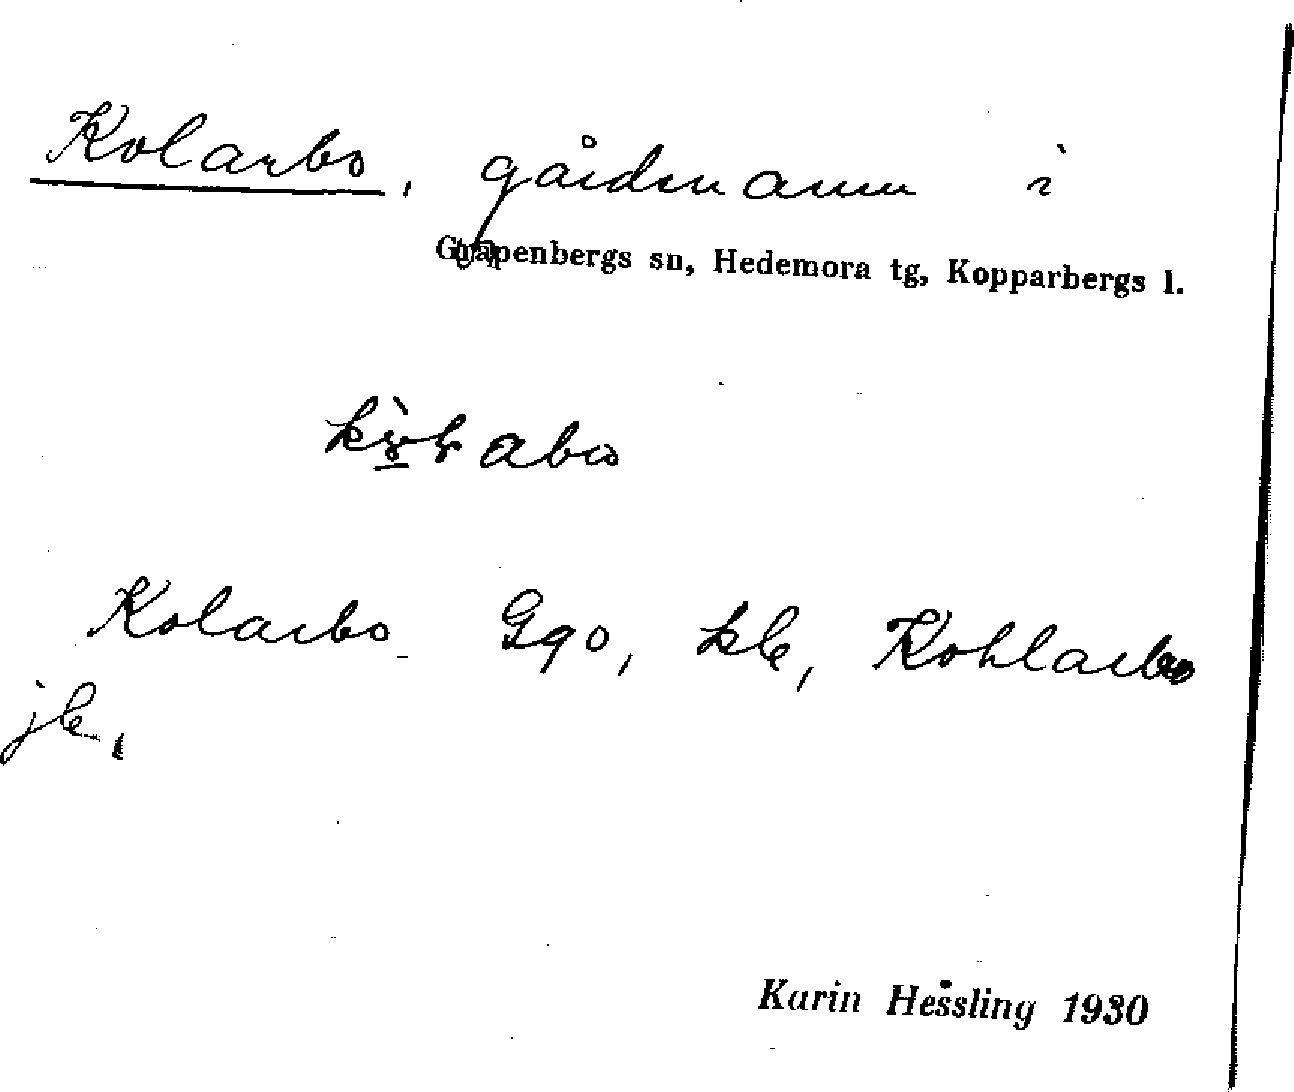 Kolarbo, gårdsnamn i
Garpenbergs sn, Hedemora tg, Kopparbergs l.
Kolarbo Gqo, kle, Kohlarbo
jle,
Karin Hessling 1930